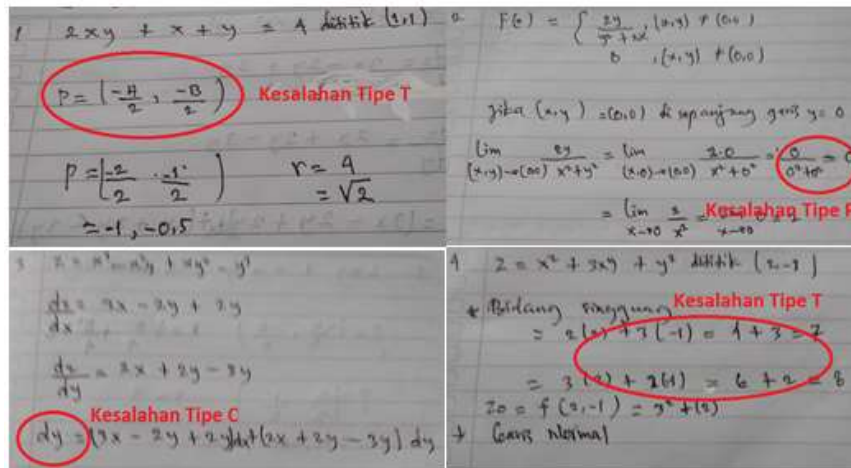 1 2xy + x + y = 4 dititik (2,1)
P = (-A/2, -B/2) Kesalahan Tipe T
P = (-2/2, -1/2) r = 4
= √2
= -1, -0,5
F(x) = { 2y/, (x,y) ≠ (0,0)
0, (x,y) ≠ (0,0)
Jika (x,y) = (0,0) di sepanjang garis y = 0
lim (x,y)→(0,0) 2y/x²+y² = lim (x,0)→(0,0) 2.0/x²+0² = 0/0²+0² = 0
= lim x→0 2/x² = Kesalahan Tipe
3
dz/dx = 3x - 2y + 2y
dz/dy = 2x + 2y - 3y
Kesalahan Tipe C
dy = (3x - 2y + 2y)dx + (2x + 2y - 3y) dy
4 z = x² + 3xy + y² dititik (2,-1)
Kesalahan Tipe T
* Bidang singgung
= 2(2) + 3(-1) = 4 + 3 = 7
= 3(2) + 2(1) = 6 + 2 = 8
Z0 = f(2,-1) = 2² + (2)
* Garis Normal